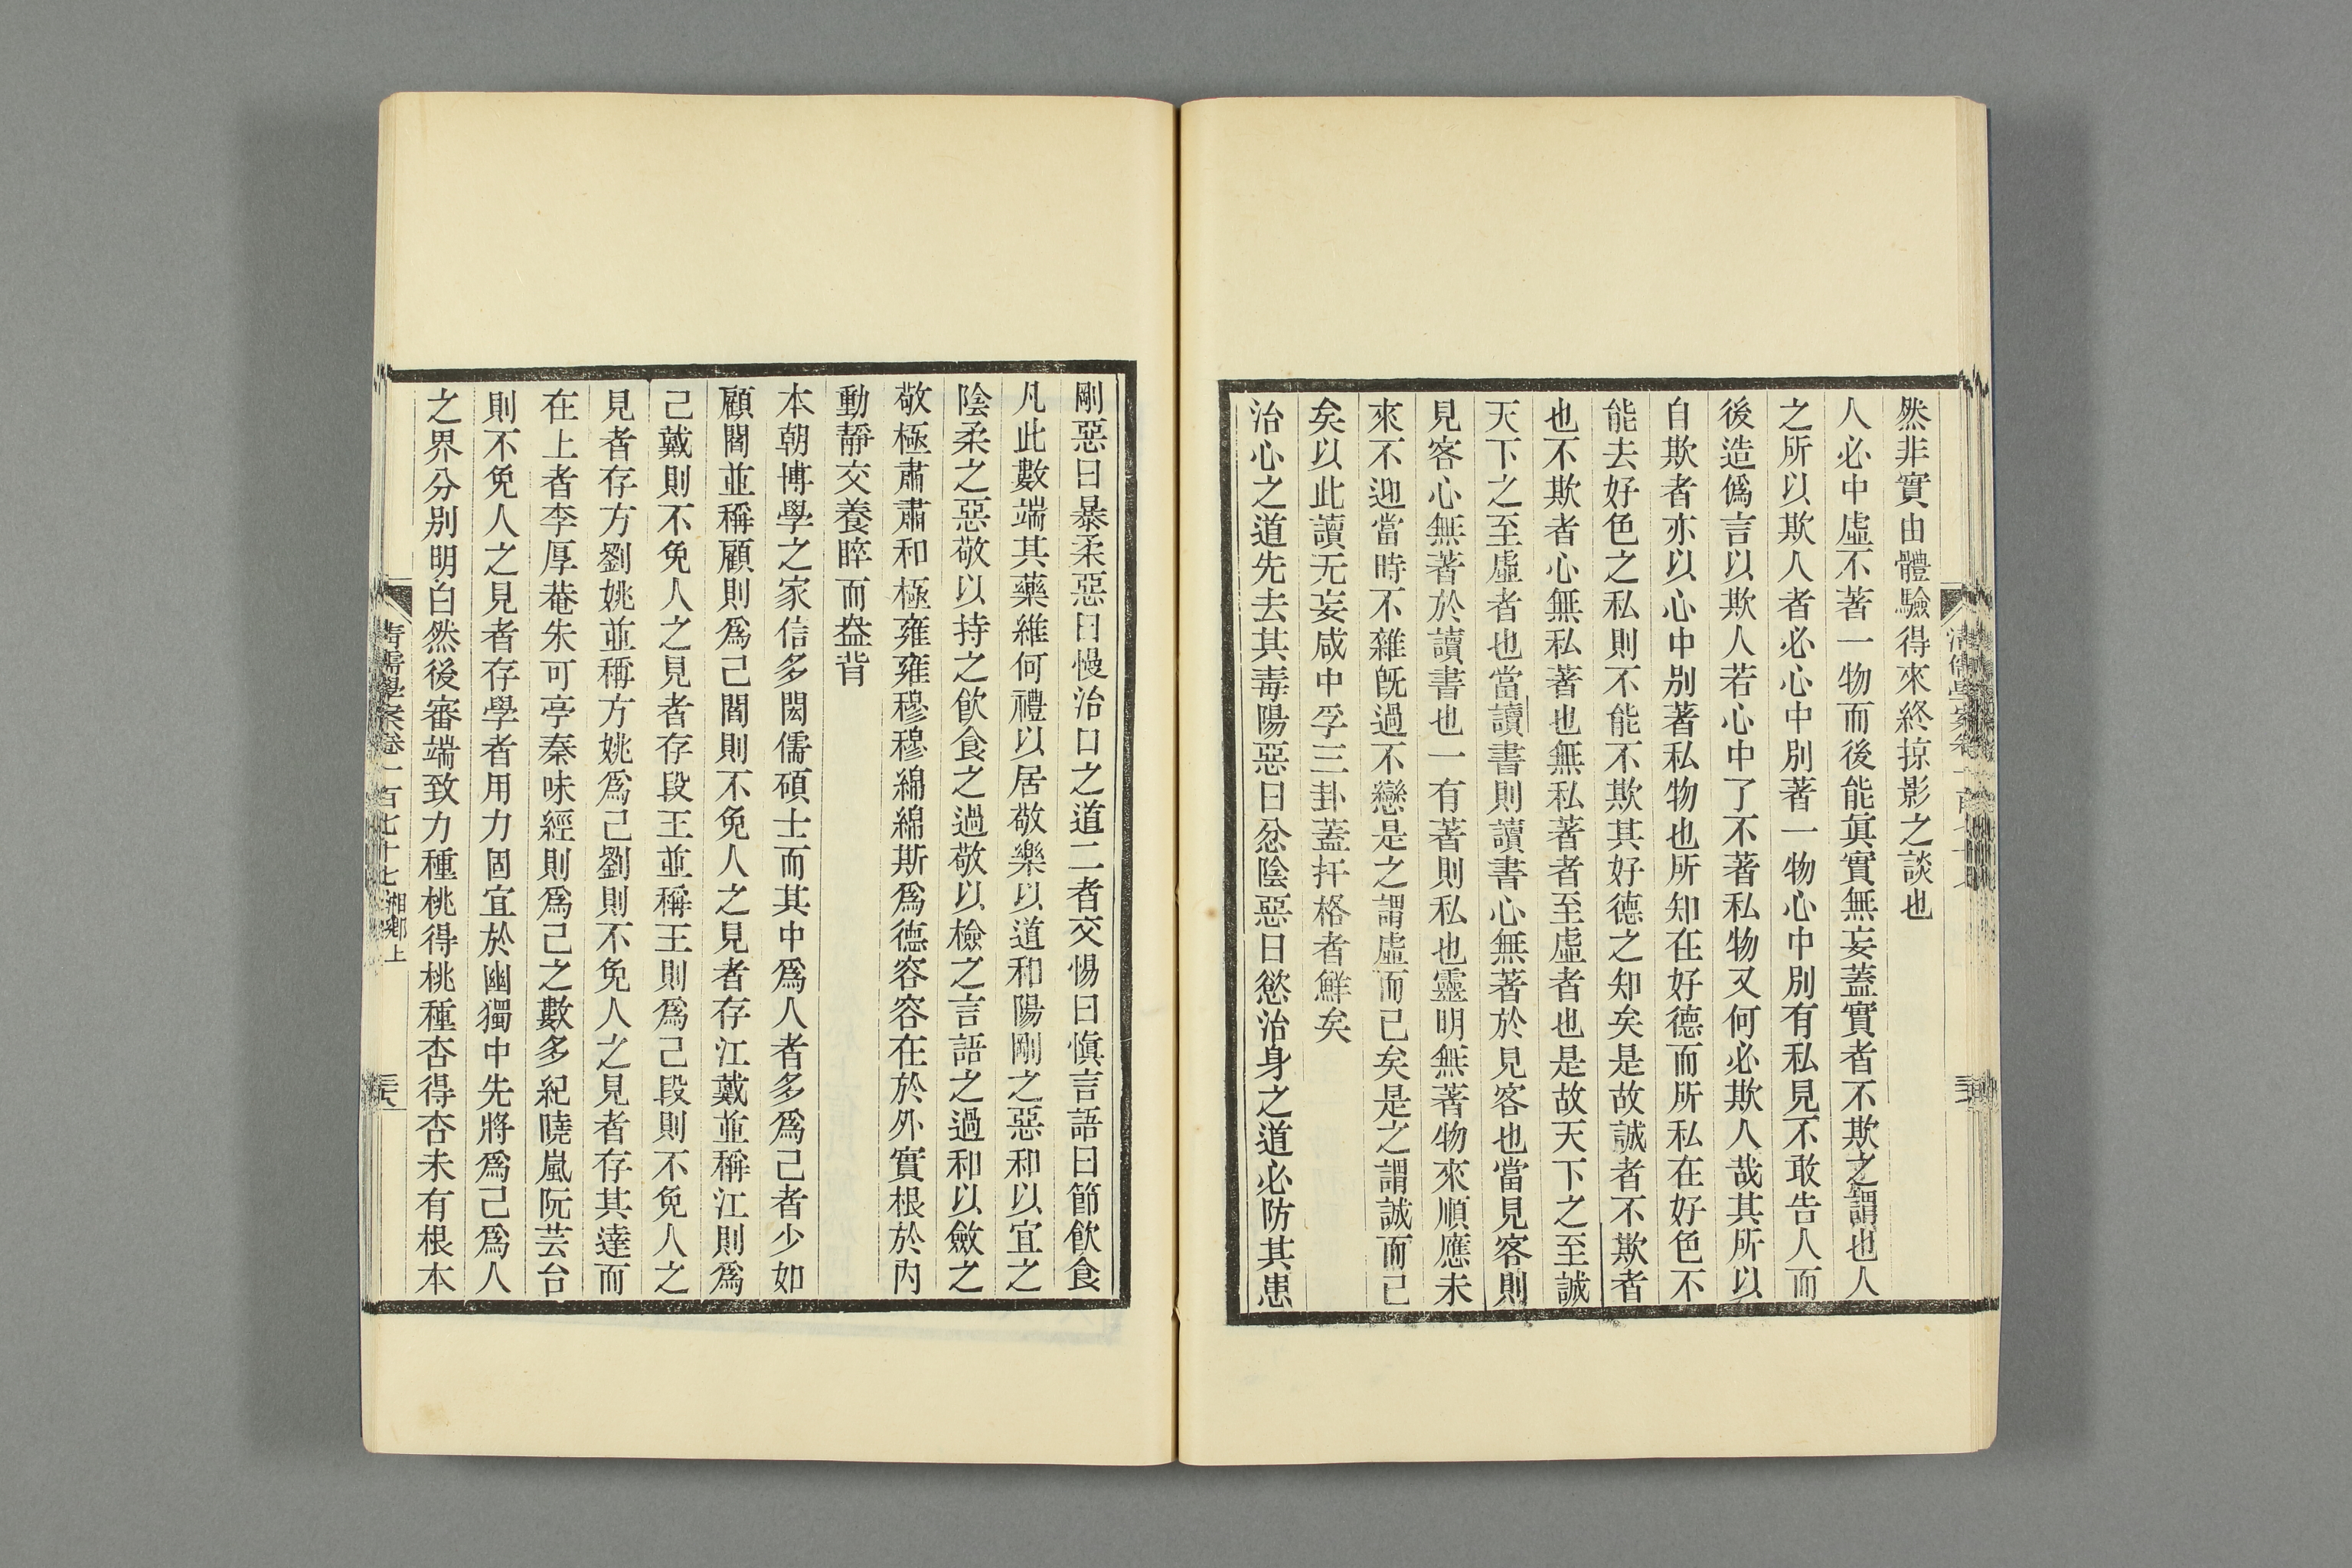 然非實由體驗得來終掠影之談也
人必中虛不著一物而後能眞實無妄蓋實者不欺之謂也人
之所以欺人者必心中別著一物心中別有私見不敢告人而
後造僞言以欺人若心中了不著私物又何必欺人哉其所以
自欺者亦以心中別著私物也所知在好德而所私在好色不
能去好色之私則不能不欺其好德之知矣是故誠者不欺者
也不欺者心無私著也無私著者至虛者也是故天下之至誠
天下之至虛者也當讀書則讀書心無著於見客也當見客則
見客心無著於讀書也一有著則私也靈明無著物來順應未
來不迎當時不雜旣過不戀是之謂虛而已矣是之謂誠而已
矣以此讀无妄咸中孚三卦蓋扞格者鮮矣
治心之道先去其毒陽惡曰忿陰惡曰慾治身之道必防其患
剛惡曰暴柔惡曰慢治口之道二者交惕曰愼言語曰節飲食
凡此數端其藥維何禮以居敬樂以道和陽剛之惡和以宜之
陰柔之惡敬以持之飲食之過敬以檢之言語之過和以斂之
敬極肅肅和極雍雍穆穆綿綿斯爲德容容在於外實根於內
動靜交養睟而盎背
本朝博學之家信多閎儒碩士而其中爲人者多爲己者少如
顧閻並稱顧則爲己閻則不免人之見者存江戴並稱江則爲
己戴則不免人之見者存段王並稱王則爲己段則不免人之
見者存方劉姚並稱方姚爲己劉則不免人之見者存其達而
在上者李厚菴朱可亭秦味經則爲己之數多紀曉嵐阮芸台
則不免人之見者存學者用力固宜於幽獨中先將爲己爲人
之界分別明白然後審端致力種桃得桃種杏得杏未有根本
清儒學案卷一百七十七 湘鄉上